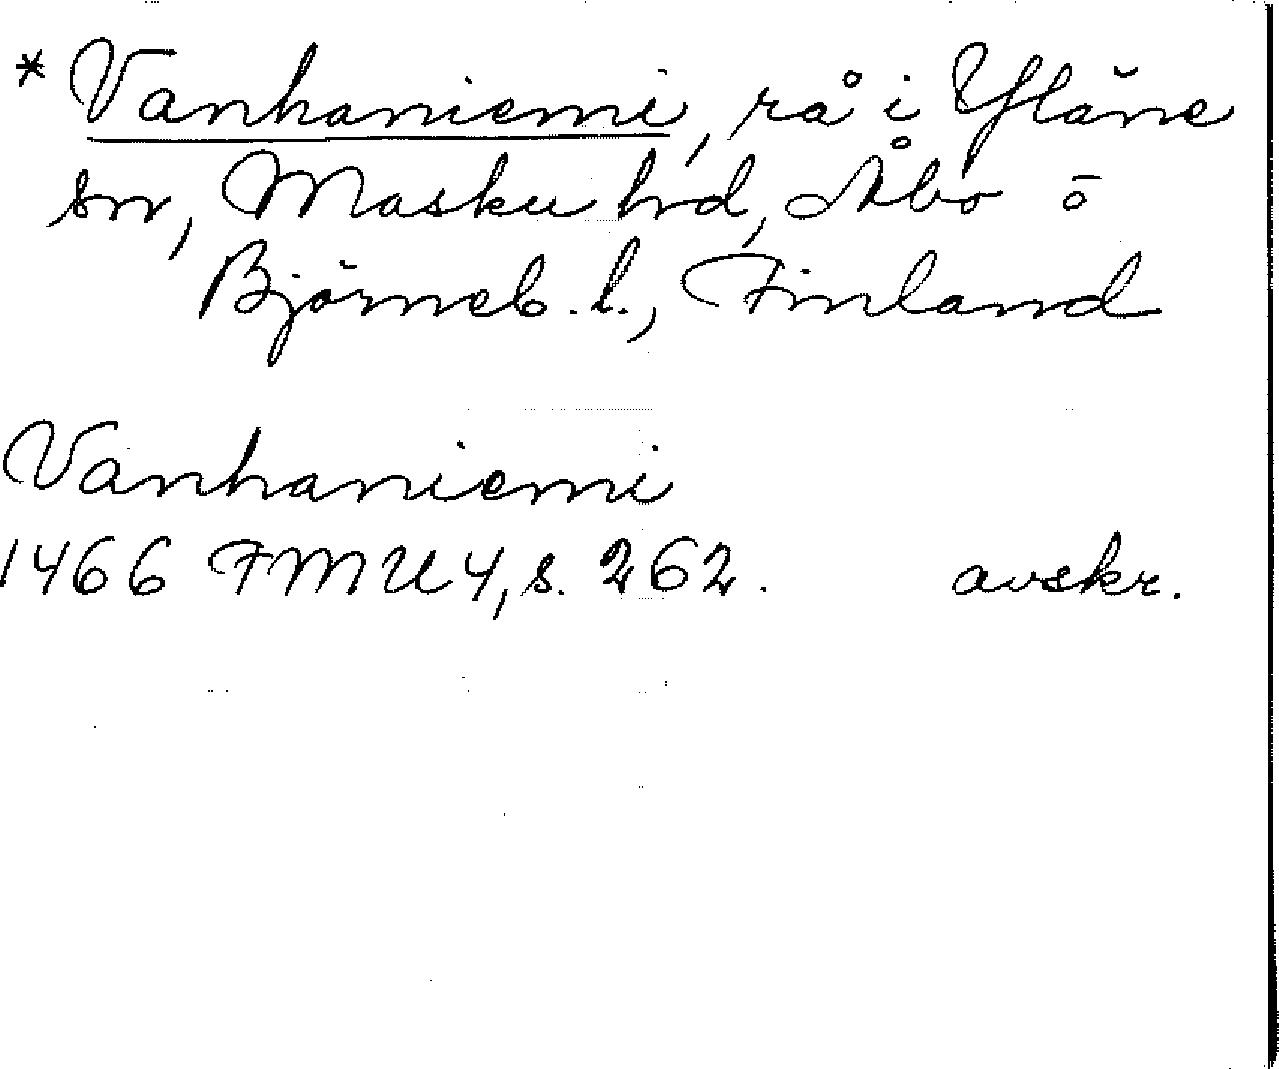 * Vanhaniemi, rå i Yläne
sn, Masku hd, Åbo o
Björneb. l., Finland
Vanhaniemi
1466 FMU 4, s. 262. avskr.